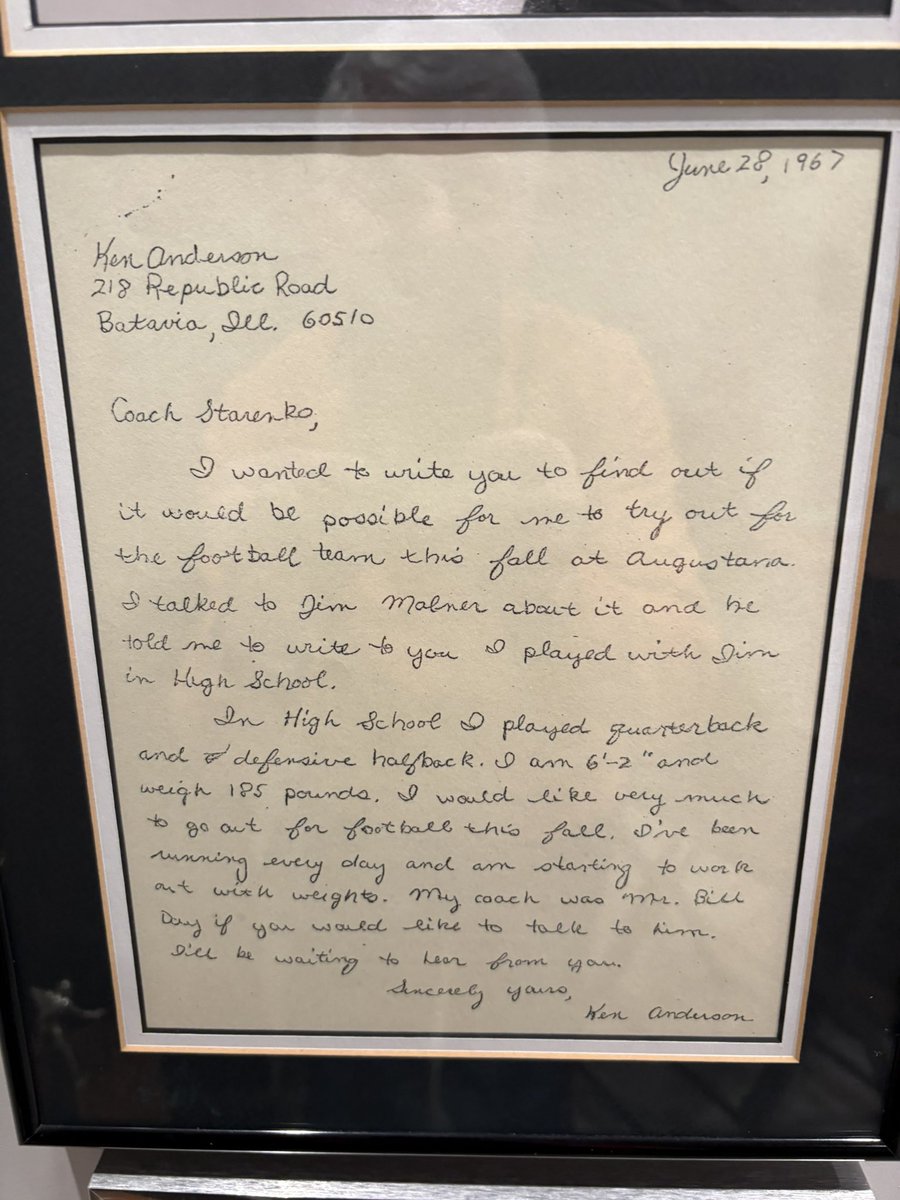 June 28, 1967
Ken Anderson
218 Republic Road
Batavia, Ill. 60510
Coach Starenko,
I wanted to write you to find out if
it would be possible for me to try out for
the football team this fall at Augustana.
I talked to Jim Malner about it and he
told me to write to you I played with Jim
in High School.
In High School I played quarterback
and defensive halfback. I am 6'-2" and
weigh 185 pounds. I would like very much
to go out for football this fall. I've been
running every day and am starting to work
out with weights. My coach was Mr. Bill
Day if you would like to talk to him.
I'll be waiting to hear from you.
Sincerely yours,
Ken Anderson